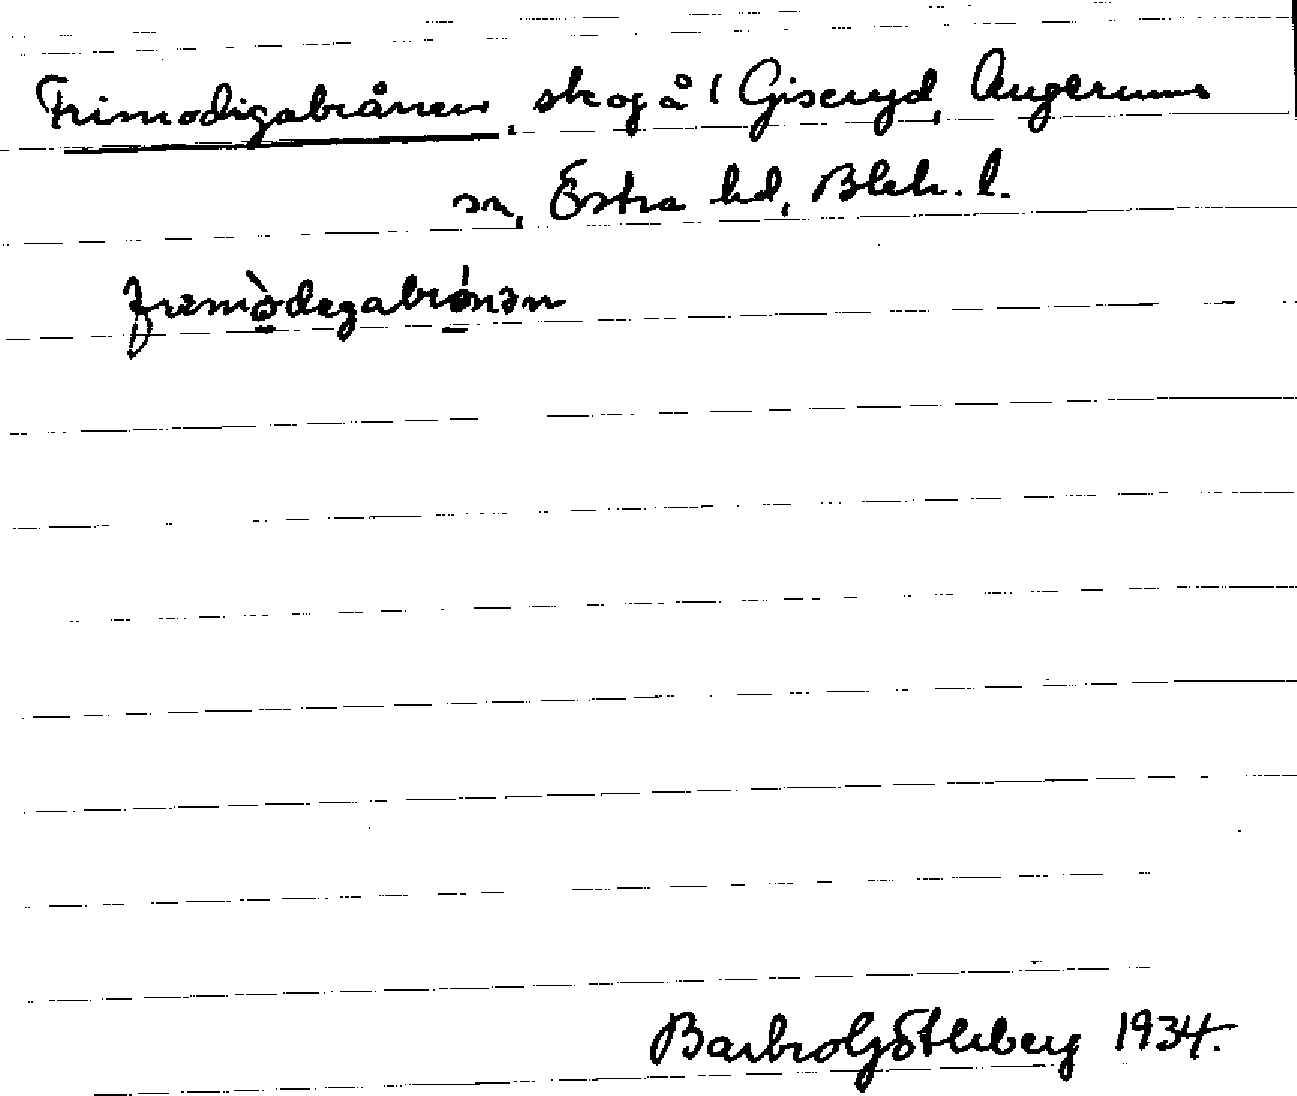 Frimodigabrånen, skog å 1 Giseryd, Augerums
sn, Östra hd, Blek. l.
fremòdegabrónən
Barbro Götleberg 1934.